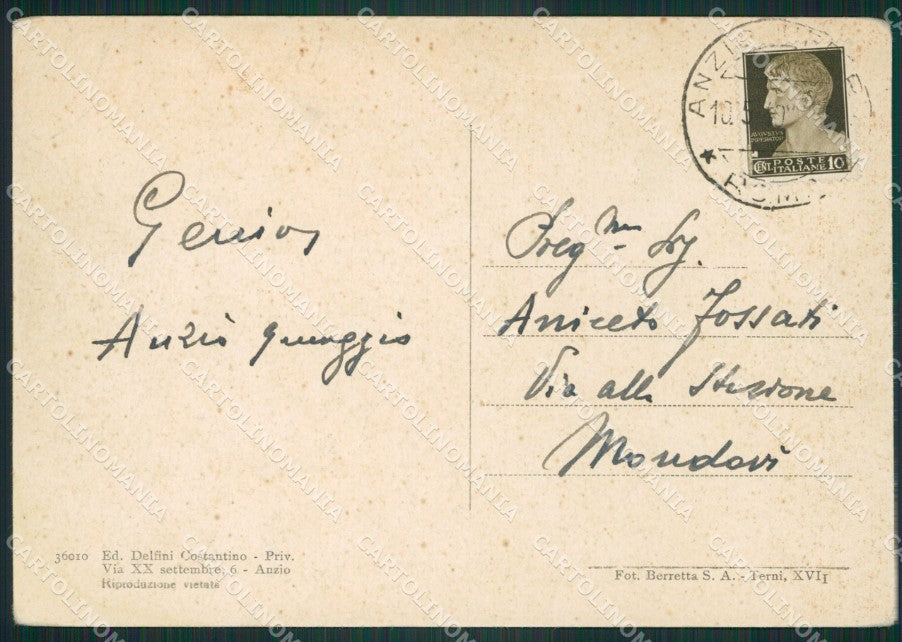 Anzio 9 maggio
Preg.mo Sig.
Aniceto Fossati
Via alla Stazione
Mondovì
ANZIO
10.5
ROMA
AVGVSTVS
CENT. POSTE ITALIANE 10
36010 Ed. Delfini Costantino - Priv.
Via XX settembre, 6 - Anzio
Riproduzione vietata
Fot. Berretta S. A. - Terni, XVII
CARTOLINOMANIA